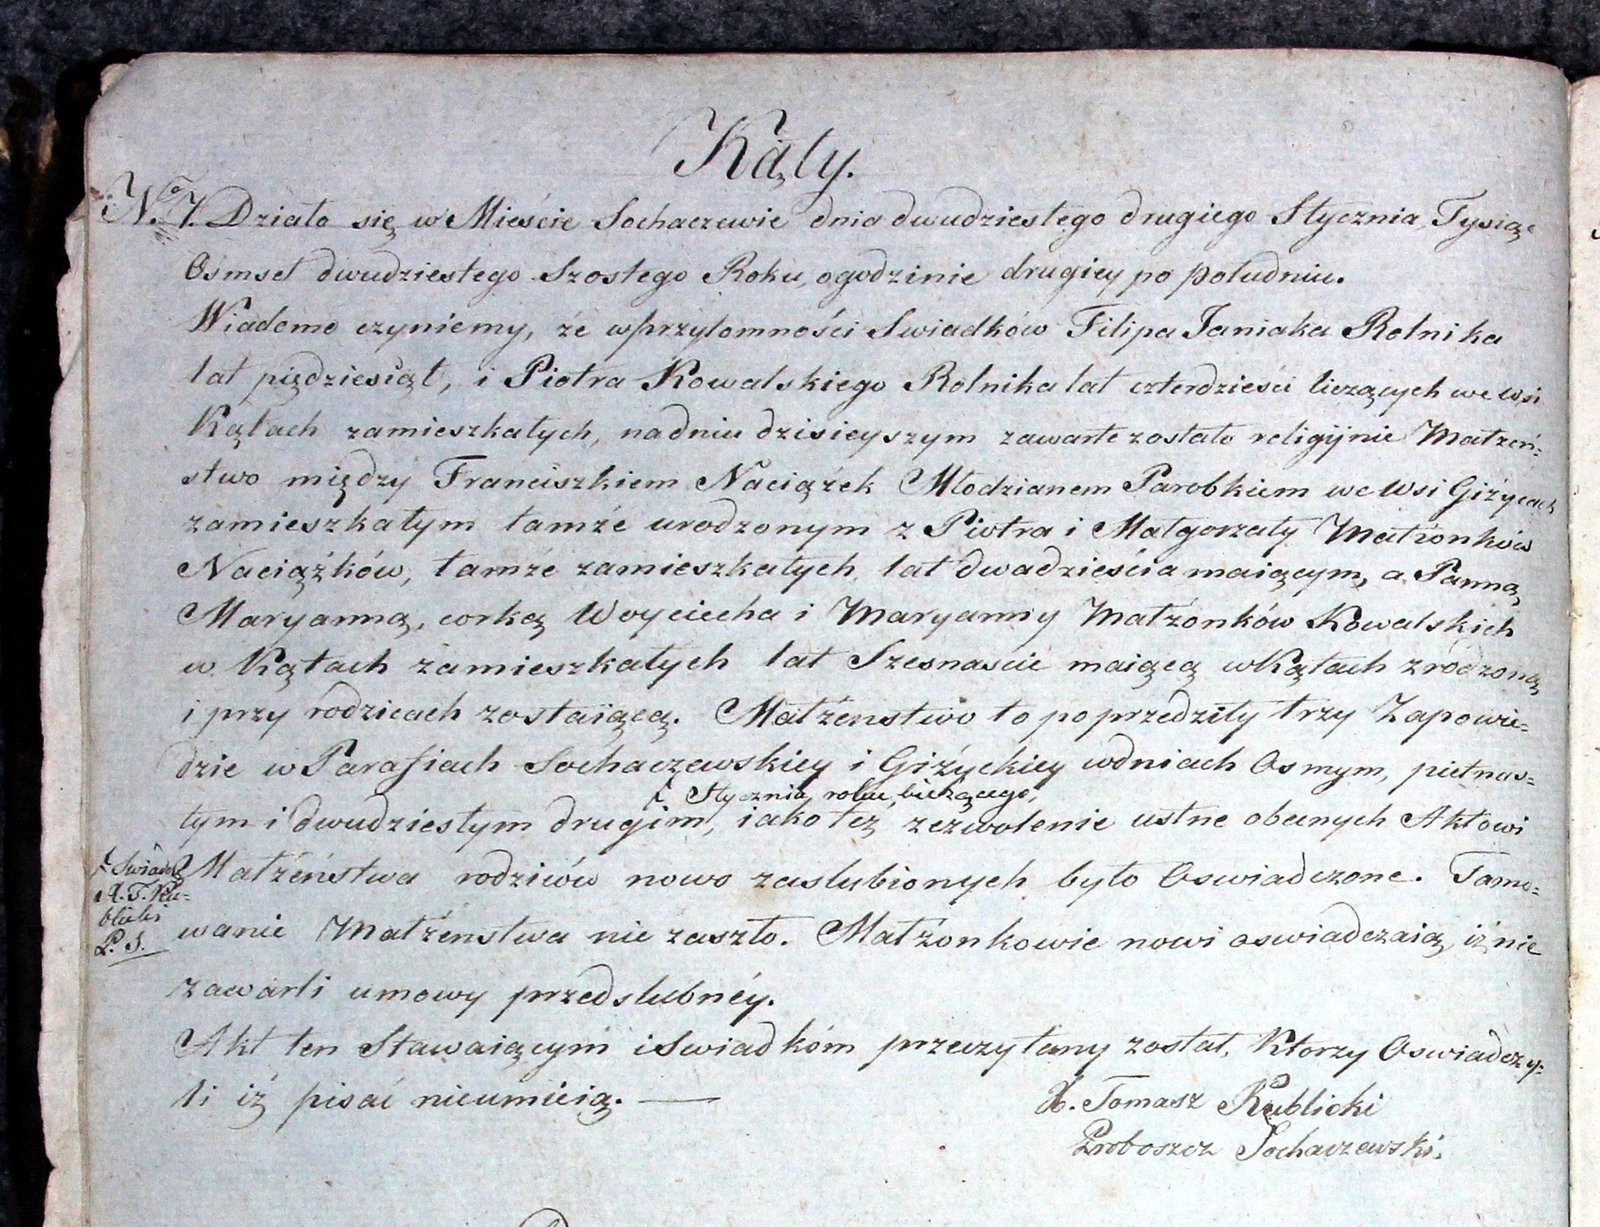 Kąty.
No. 7. Działo się w Mieście Sochaczewie dnia dwudziestego drugiego Stycznia, Tysiąc
Ośmset dwudziestego Szostego Roku, o godzinie drugiey po południu.
Wiadomo czyniemy, że w przytomności Swiadków Filipa Janiaka Rolnika
lat pięдziesiąt, i Piotra Kowalskiego Rolnika lat czterdzieści liczących we wsi
Kątach zamieszkałych, na dniu dzisieyszym zawarte zostało religijnie Małżeń-
stwo między Franciszkiem Naciążek Młodzianem Parobkiem we Wsi Giżycach
zamieszkałym tamże urodzonym z Piotra i Małgorzaty Małżonków
Naciążków, tamże zamieszkałych, lat dwadzieścia maiącym, a Panną
Maryanną, corką Woyciecha i Maryanny Małżonków Kowalskich
w Kątach zamieszkałych lat Szesnaście maiącą w Kątach zrodzoną
i przy rodzicach zostaiącą. Małżenstwo to poprzedziły trzy Zapowie-
dzie w Parafiach Sochaczewskiey i Giżyckiey w dniach Osmym, piętnas-
Stycznia roku bieżącego,
tym i dwudziestym drugim, iako też zezwolenie ustne obecnych Aktowi
Swiadczę
X. T. Ru-
blicki
P. S.
Małżeństwa rodziców nowo zaslubionych było Oswiadczone. Tamo-
wanie Małżenstwa nie zaszło. Małżonkowie nowi oswiadczaią, iż nie
zawarli umowy przedslubnéy.
Akt ten Stawaiącym i Swiadkóm przeczytany został, Ktorzy Oswiadczy-
li iż pisać nieumieią. —
X. Tomasz Rublicki
Proboszcz Sochaczewski.